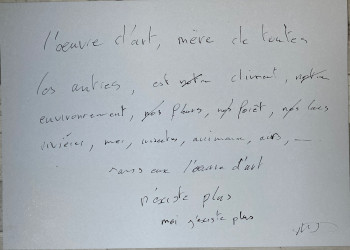 l'œuvre d'art, mère de toutes
les autres, est notre climat, notre
environnement, nos fleurs, nos forêt, nos lacs
rivières, moi, insectes, animaux, air, _
sans eux l'œuvre d'art
n'existe plus
moi j'existe plus